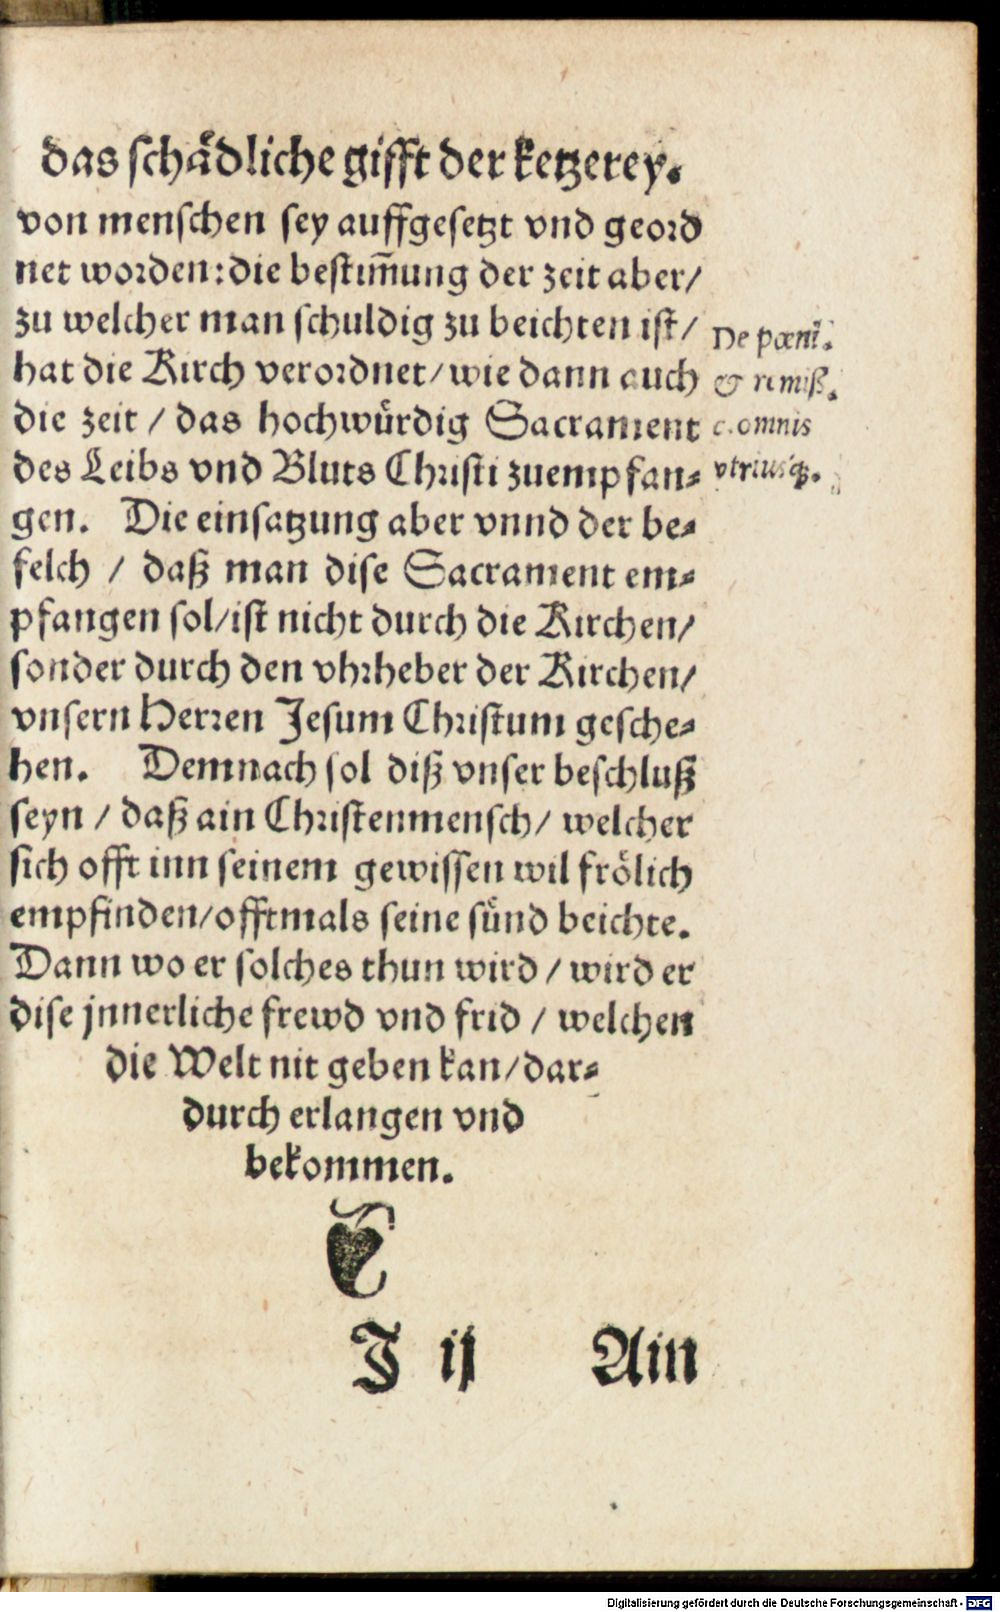 das schaͤdliche gifft der ketzerey.
von menschen sey auffgesetzt vnd geord
net worden: die bestim̃ung der zeit aber/
zu welcher man schuldig zu beichten ist/
hat die Kirch verordnet/ wie dann auch
die zeit / das hochwuͤrdig Sacrament
des Leibs vnd Bluts Christi zuempfan⸗
gen. Die einsatzung aber vnnd der be⸗
felch / daß man dise Sacrament em⸗
pfangen sol/ ist nicht durch die Kirchen/
sonder durch den vhrheber der Kirchen/
vnsern Herren Jesum Christum gesche⸗
hen. Demnach sol diß vnser beschluß
seyn / daß ain Christenmensch/ welcher
sich offt inn seinem gewissen wil froͤlich
empfinden/ offtmals seine suͤnd beichte.
Dann wo er solches thun wird / wird er
dise jnnerliche frewd vnd frid / welchen
die Welt nit geben kan/ dar⸗
durch erlangen vnd
bekommen.
De pœnĩ.
& remiß.
c. omnis
vtriusq́;.
J ij Ain
Digitalisierung gefördert durch die Deutsche Forschungsgemeinschaft - DFG